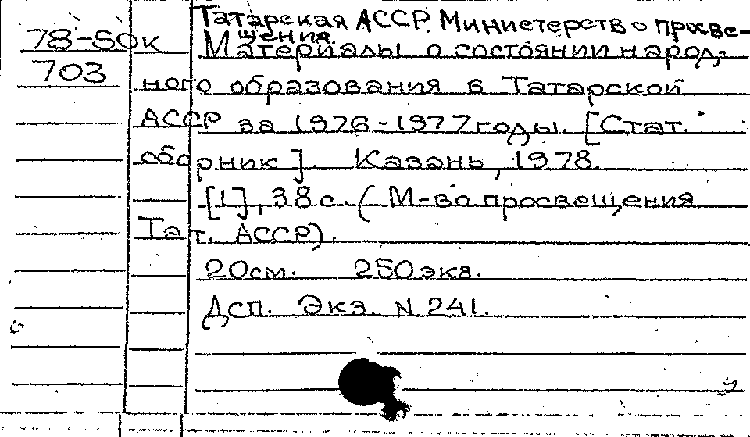 Татарская АССР. Министерство просве-
щения.
78-80к Материалы о состоянии народ-
703 ного образования в Татарской
АССР за 1976-1977 годы. [Стат.
сборник]. Казань, 1978.
[1], 38 с. (М-во просвещения
Тат. АССР).
20см. 250 экз.
Дсп. Экз. N 241.